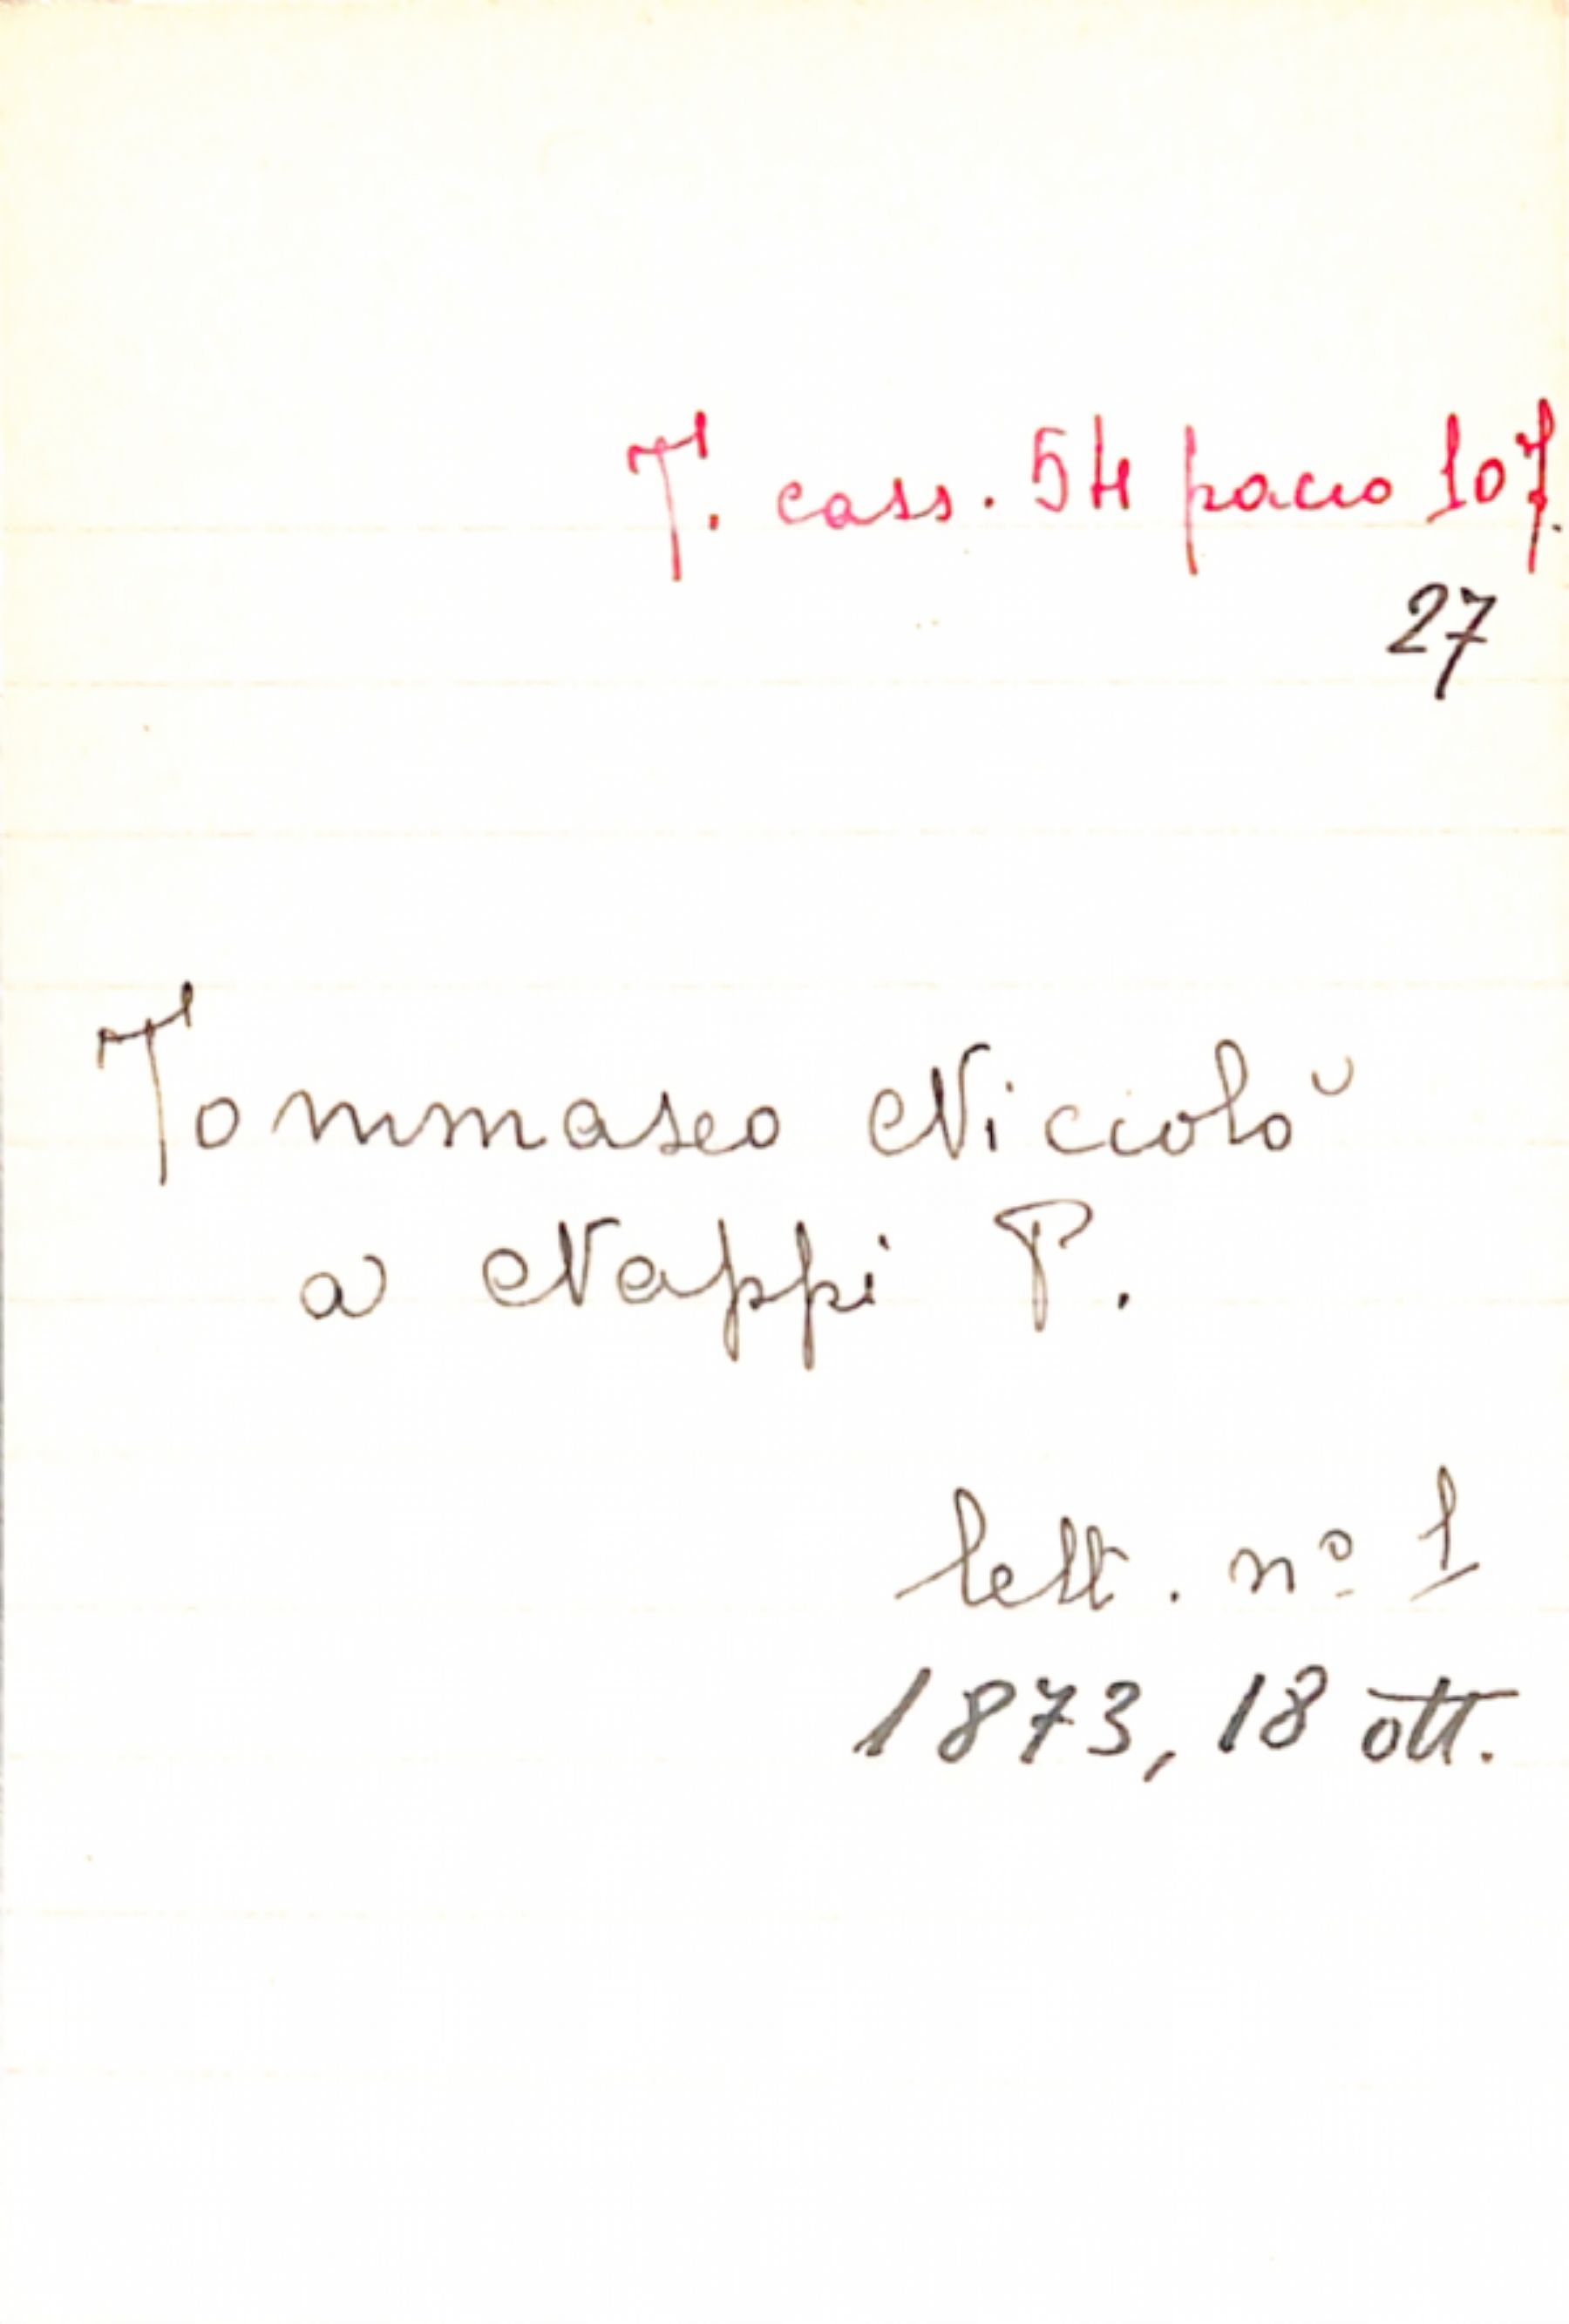 T. cass. 54 pacco 107.
27
Tommaseo Niccolò
a Nappi P.
lett. nº 1
1873, 18 ott.